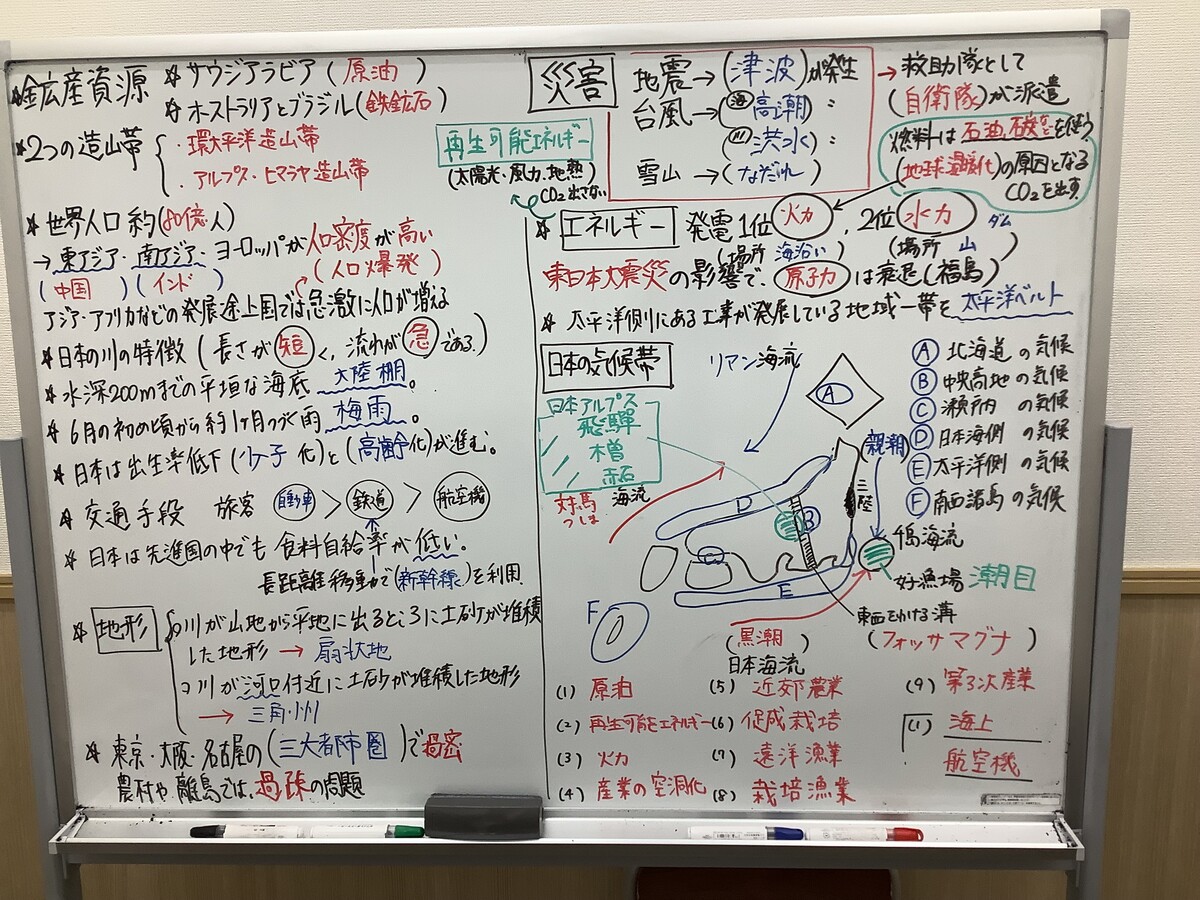 *鉱産資源 * サウジアラビア(原油)
* ホストラリアとブラジル(鉄鉱石)
*2つの造山帯
・環太平洋造山帯
・アルプス・ヒマラヤ造山帯
* 世界人口 約(80億人)
→東アジア・南アジア・ヨーロッパが人口密度が高い
(中国)(インド)
(人口爆発)
アジア・アフリカなどの発展途上国では急激に人口が増える
*日本の川の特徴(長さが短く、流れが急である。)
* 水深200mまでの平坦な海底 大陸棚。
* 6月の初め頃から約1ヶ月つづく雨 梅雨。
* 日本は出生率低下(少子化)と(高齢化)が進む。
* 交通手段 旅客 自動車 > 鉄道 > 航空機
* 日本は先進国の中でも食料自給率が低い。
長距離移動で(新幹線)を利用
* 地形
川が山地から平地に出るところに土砂が堆積
した地形 → 扇状地
川が河口付近に土砂が堆積した地形
→ 三角州
* 東京・大阪・名古屋の(三大都市圏)で過密
農村や離島では、過疎の問題
災害
地震→(津波)が発生
台風→(海 高潮) 〃
(川 洪水) 〃
雪山→(なだれ) 〃
→救助隊として
(自衛隊)が派遣
再生可能エネルギー
(太陽光・風力・地熱)
CO2出さない
燃料は石油、石炭などを使う
(地球温暖化)の原因となる
CO2を出す
* エネルギー 発電1位 火力、2位 水力 ダム
(場所 海沿い) (場所 山)
東日本大震災の影響で、原子力は衰退(福島)
* 太平洋側にある工業が発展している地域一帯を太平洋ベルト
日本の気候帯
リマン海流
日本アルプス
飛騨
木曽
赤石
対馬 海流
つしま
A
親潮
三陸
D
B
E
F
千島海流
好漁場 潮目
東西を分ける溝
(フォッサマグナ)
(黒潮)
日本海流
A 北海道の気候
B 中央高地の気候
C 瀬戸内の気候
D 日本海側の気候
E 太平洋側の気候
F 南西諸島の気候
(1) 原油
(2) 再生可能エネルギー
(3) 火力
(4) 産業の空洞化
(5) 近郊農業
(6) 促成栽培
(7) 遠洋漁業
(8) 栽培漁業
(9) 第3次産業
(1) 海上
航空機